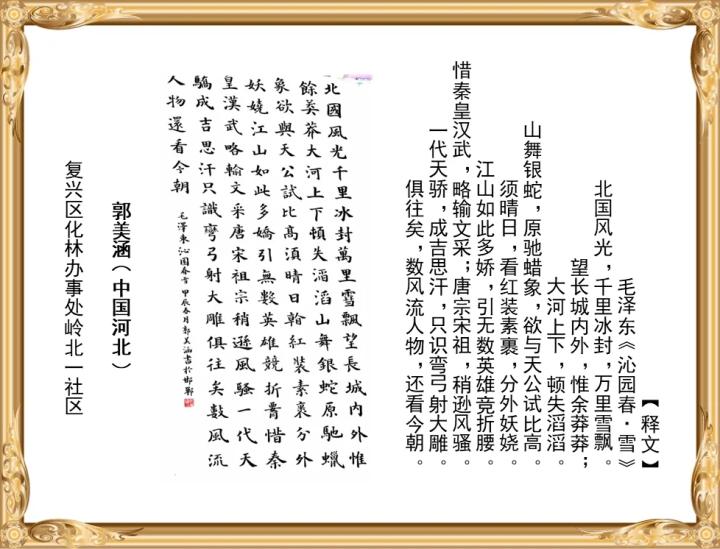 【释文】
毛泽东《沁园春·雪》
北国风光，千里冰封，万里雪飘。
望长城内外，惟余莽莽；
大河上下，顿失滔滔。
山舞银蛇，原驰蜡象，欲与天公试比高。
须晴日，看红装素裹，分外妖娆。
江山如此多娇，引无数英雄竞折腰。
惜秦皇汉武，略输文采；唐宗宋祖，稍逊风骚。
一代天骄，成吉思汗，只识弯弓射大雕。
俱往矣，数风流人物，还看今朝。
北國風光千里冰封萬里雪飄望長城内外惟
餘莽莽大河上下頓失滔滔山舞銀蛇原馳蠟
象欲與天公試比高須晴日看紅裝素裹分外
妖嬈江山如此多嬌引無數英雄競折腰惜秦
皇漢武略輸文采唐宗宋祖稍遜風騷一代天
驕成吉思汗只識彎弓射大雕俱往矣數風流
人物還看今朝
毛澤東沁園春雪 甲辰春月郭美涵書於邯鄲
郭美涵（中国河北）
复兴区化林办事处岭北一社区